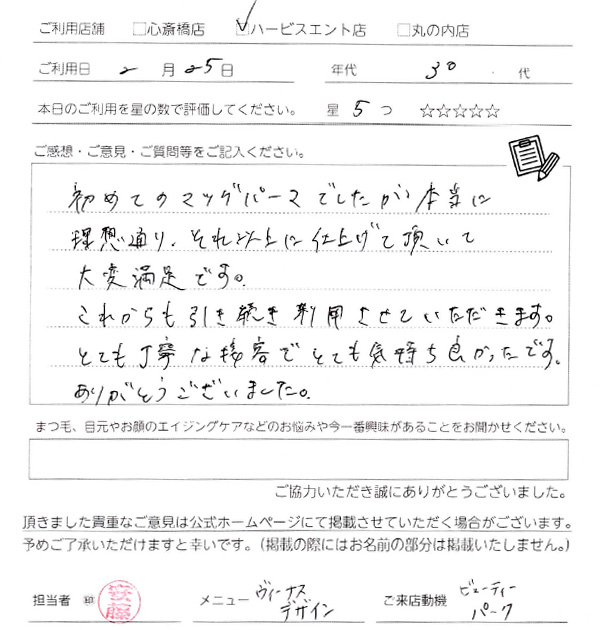 ご利用店舗 □心斎橋店 ☑ハービスエント店 □丸の内店
ご利用日 2月25日 年代 30代
本日のご利用を星の数で評価してください。 星5つ ☆☆☆☆☆
ご感想・ご意見・ご質問等をご記入ください。
初めてのマツゲパーマでしたが本当に
理想通り、それ以上に仕上げて頂いて
大変満足です。
これからも引き続き利用させていただきます。
とても丁寧な接客でとても気持ち良かったです。
ありがとうございました。
まつ毛、目元やお顔のエイジングケアなどのお悩みや今一番興味があることをお聞かせください。
ご協力いただき誠にありがとうございました。
頂きました貴重なご意見は公式ホームページにて掲載させていただく場合がございます。
予めご了承いただけますと幸いです。(掲載の際にはお名前の部分は掲載いたしません。)
担当者 ㊞ 安藤 メニュー ヴィーナスデザイン ご来店動機 ビューティーパーク